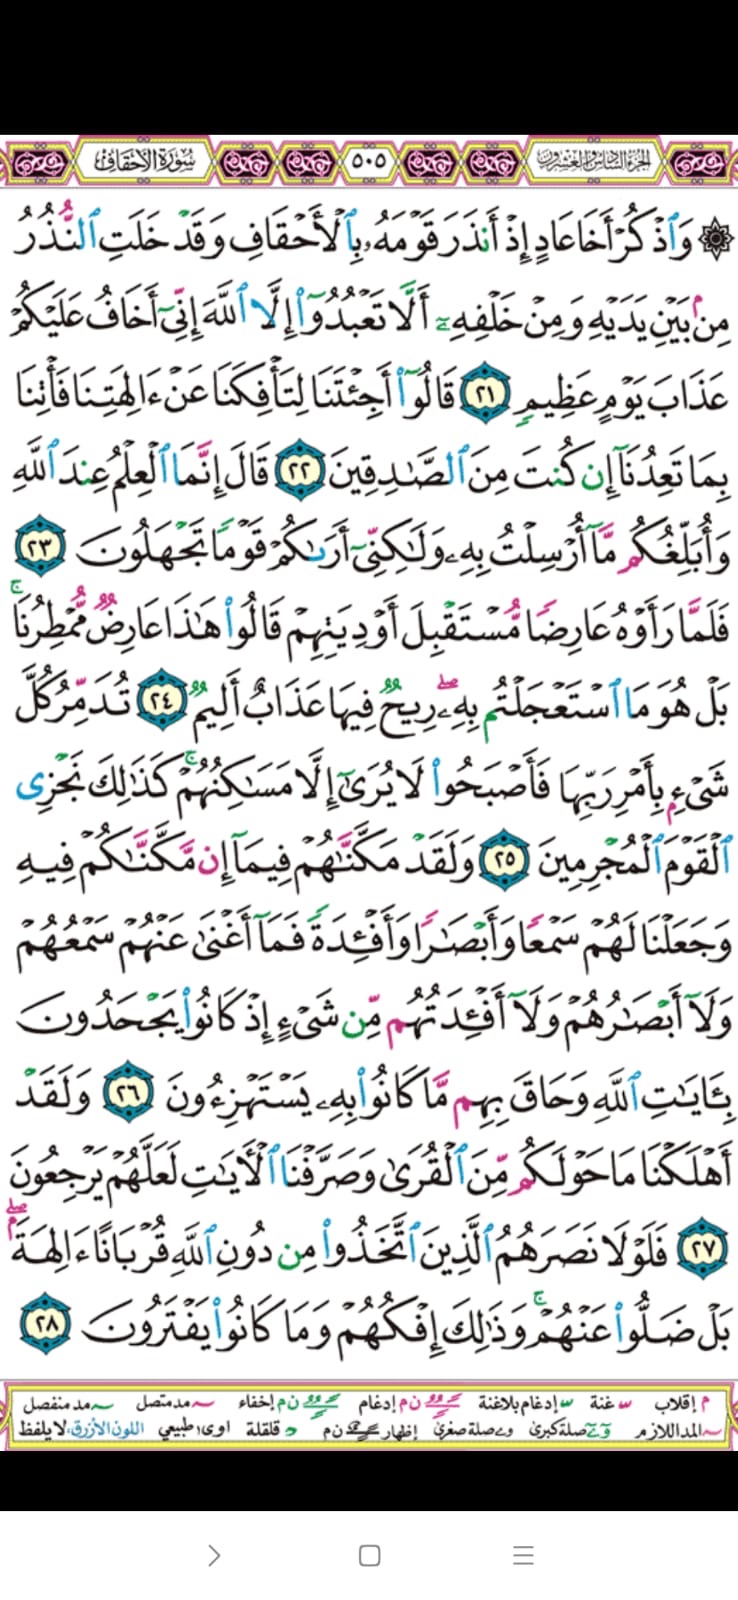 الجزء السادس والعشرون ٥٠٥ سورة الأحقاف
۞ وَٱذْكُرْ أَخَا عَادٍ إِذْ أَنذَرَ قَوْمَهُۥ بِٱلْأَحْقَافِ وَقَدْ خَلَتِ ٱلنُّذُرُ
مِنۢ بَيْنِ يَدَيْهِ وَمِنْ خَلْفِهِۦٓ أَلَّا تَعْبُدُوٓا۟ إِلَّا ٱللَّهَ إِنِّىٓ أَخَافُ عَلَيْكُمْ
عَذَابَ يَوْمٍ عَظِيمٍ ٢١ قَالُوٓا۟ أَجِئْتَنَا لِتَأْفِكَنَا عَنْ ءَالِهَتِنَا فَأْتِنَا
بِمَا تَعِدُنَآ إِن كُنتَ مِنَ ٱلصَّـٰدِقِينَ ٢٢ قَالَ إِنَّمَا ٱلْعِلْمُ عِندَ ٱللَّهِ
وَأُبَلِّغُكُم مَّآ أُرْسِلْتُ بِهِۦ وَلَـٰكِنِّىٓ أَرَىٰكُمْ قَوْمًا تَجْهَلُونَ ٢٣
فَلَمَّا رَأَوْهُ عَارِضًا مُّسْتَقْبِلَ أَوْدِيَتِهِمْ قَالُوا۟ هَـٰذَا عَارِضٌ مُّمْطِرُنَا ۚ
بَلْ هُوَ مَا ٱسْتَعْجَلْتُم بِهِۦ ۖ رِيحٌ فِيهَا عَذَابٌ أَلِيمٌ ٢٤ تُدَمِّرُ كُلَّ
شَىْءٍۭ بِأَمْرِ رَبِّهَا فَأَصْبَحُوا۟ لَا يُرَىٰٓ إِلَّا مَسَـٰكِنُهُمْ ۚ كَذَٰلِكَ نَجْزِى
ٱلْقَوْمَ ٱلْمُجْرِمِينَ ٢٥ وَلَقَدْ مَكَّنَّـٰهُمْ فِيمَآ إِن مَّكَّنَّـٰكُمْ فِيهِ
وَجَعَلْنَا لَهُمْ سَمْعًا وَأَبْصَـٰرًا وَأَفْـِٔدَةً فَمَآ أَغْنَىٰ عَنْهُمْ سَمْعُهُمْ
وَلَآ أَبْصَـٰرُهُمْ وَلَآ أَفْـِٔدَتُهُم مِّن شَىْءٍ إِذْ كَانُوا۟ يَجْحَدُونَ
بِـَٔايَـٰتِ ٱللَّهِ وَحَاقَ بِهِم مَّا كَانُوا۟ بِهِۦ يَسْتَهْزِءُونَ ٢٦ وَلَقَدْ
أَهْلَكْنَا مَا حَوْلَكُم مِّنَ ٱلْقُرَىٰ وَصَرَّفْنَا ٱلْـَٔايَـٰتِ لَعَلَّهُمْ يَرْجِعُونَ
٢٧ فَلَوْلَا نَصَرَهُمُ ٱلَّذِينَ ٱتَّخَذُوا۟ مِن دُونِ ٱللَّهِ قُرْبَانًا ءَالِهَةًۢ ۖ
بَلْ ضَلُّوا۟ عَنْهُمْ ۚ وَذَٰلِكَ إِفْكُهُمْ وَمَا كَانُوا۟ يَفْتَرُونَ ٢٨
م إقلاب غنة إدغام بلاغنة ن م إدغام ن م إخفاء مد متصل مد منفصل
المد اللازم صلة كبرى وے صلة صغرى إظهار ن م قلقلة اوى طبيعي اللون الأزرق، لا يلفظ